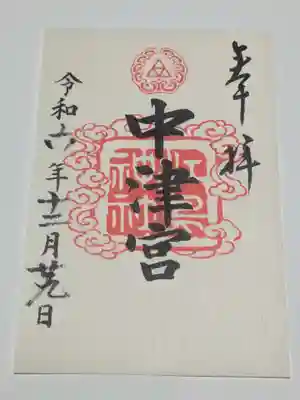 奉拝
中津宮
令和六年十二月廿九日